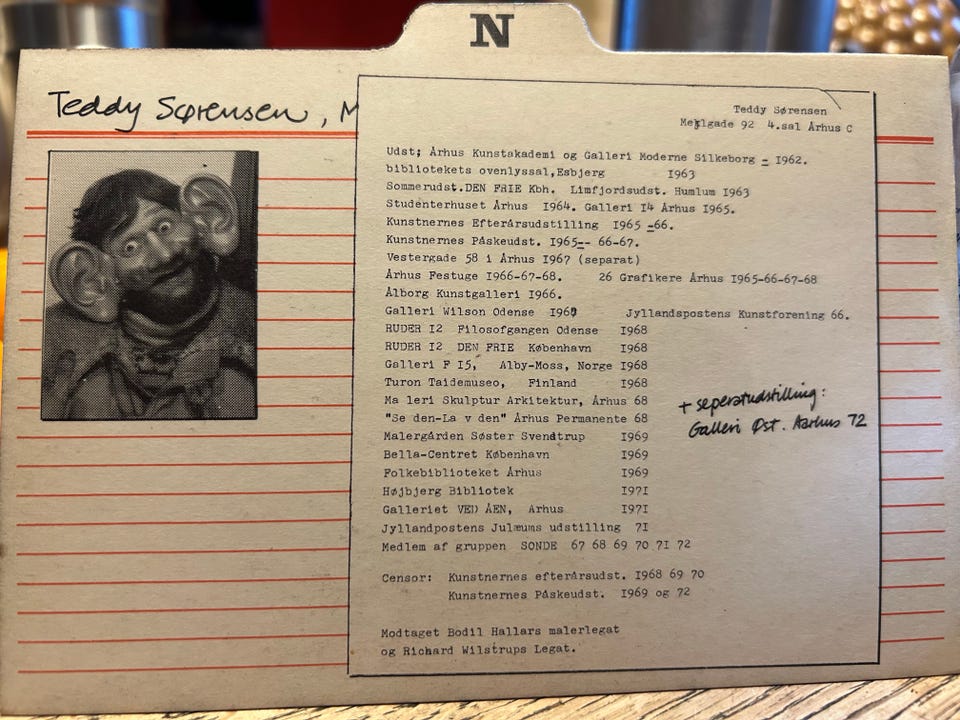 N
Teddy Sørensen, M
Teddy Sørensen
Mejlgade 92 4.sal Århus C
Udst; Århus Kunstakademi og Galleri Moderne Silkeborg - I962.
bibliotekets ovenlyssal,Esbjerg I963
Sommerudst.DEN FRIE Kbh. Limfjordsudst. Humlum I963
Studenterhuset Århus I964. Galleri I4 Århus I965.
Kunstnernes Efterårsudstilling I965 -66.
Kunstnernes Påskeudst. I965-- 66-67.
Vestergade 58 i Århus I967 (separat)
Århus Festuge I966-67-68. 26 Grafikere Århus I965-66-67-68
Ålborg Kunstgalleri I966.
Galleri Wilson Odense Jyllandspostens Kunstforening 66.
RUDER I2 Filosofgangen Odense I968
RUDER I2 DEN FRIE København I968
Galleri F I5, Alby-Moss, Norge I968
Turon Taidemuseo, Finland I968
Ma leri Skulptur Arkitektur, Århus 68
"Se den-La v den" Århus Permanente 68
Malergården Søster Svendtrup I969
Bella-Centret København I969
Folkebiblioteket Århus I969
Højbjerg Bibliotek I97I
Galleriet VED ÅEN, Århus I97I
Jyllandpostens Julæums udstilling 7I
Medlem af gruppen SONDE 67 68 69 70 7I 72
+ seperatudstilling:
Galleri Øst. Aarhus 72
Censor: Kunstnernes efterårsudst. I968 69 70
Kunstnernes Påskeudst. I969 og 72
Modtaget Bodil Hallars malerlegat
og Richard Wilstrups Legat.